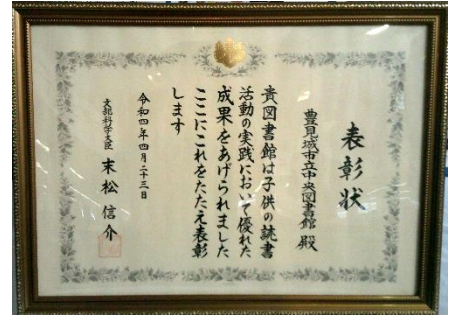 表彰状
豊見城市立中央図書館 殿
貴図書館は子供の読書
活動の実践において優れた
成果をあげられました
ここにこれをたたえ表彰
します
令和四年四月二十三日
文部科学大臣 末松信介